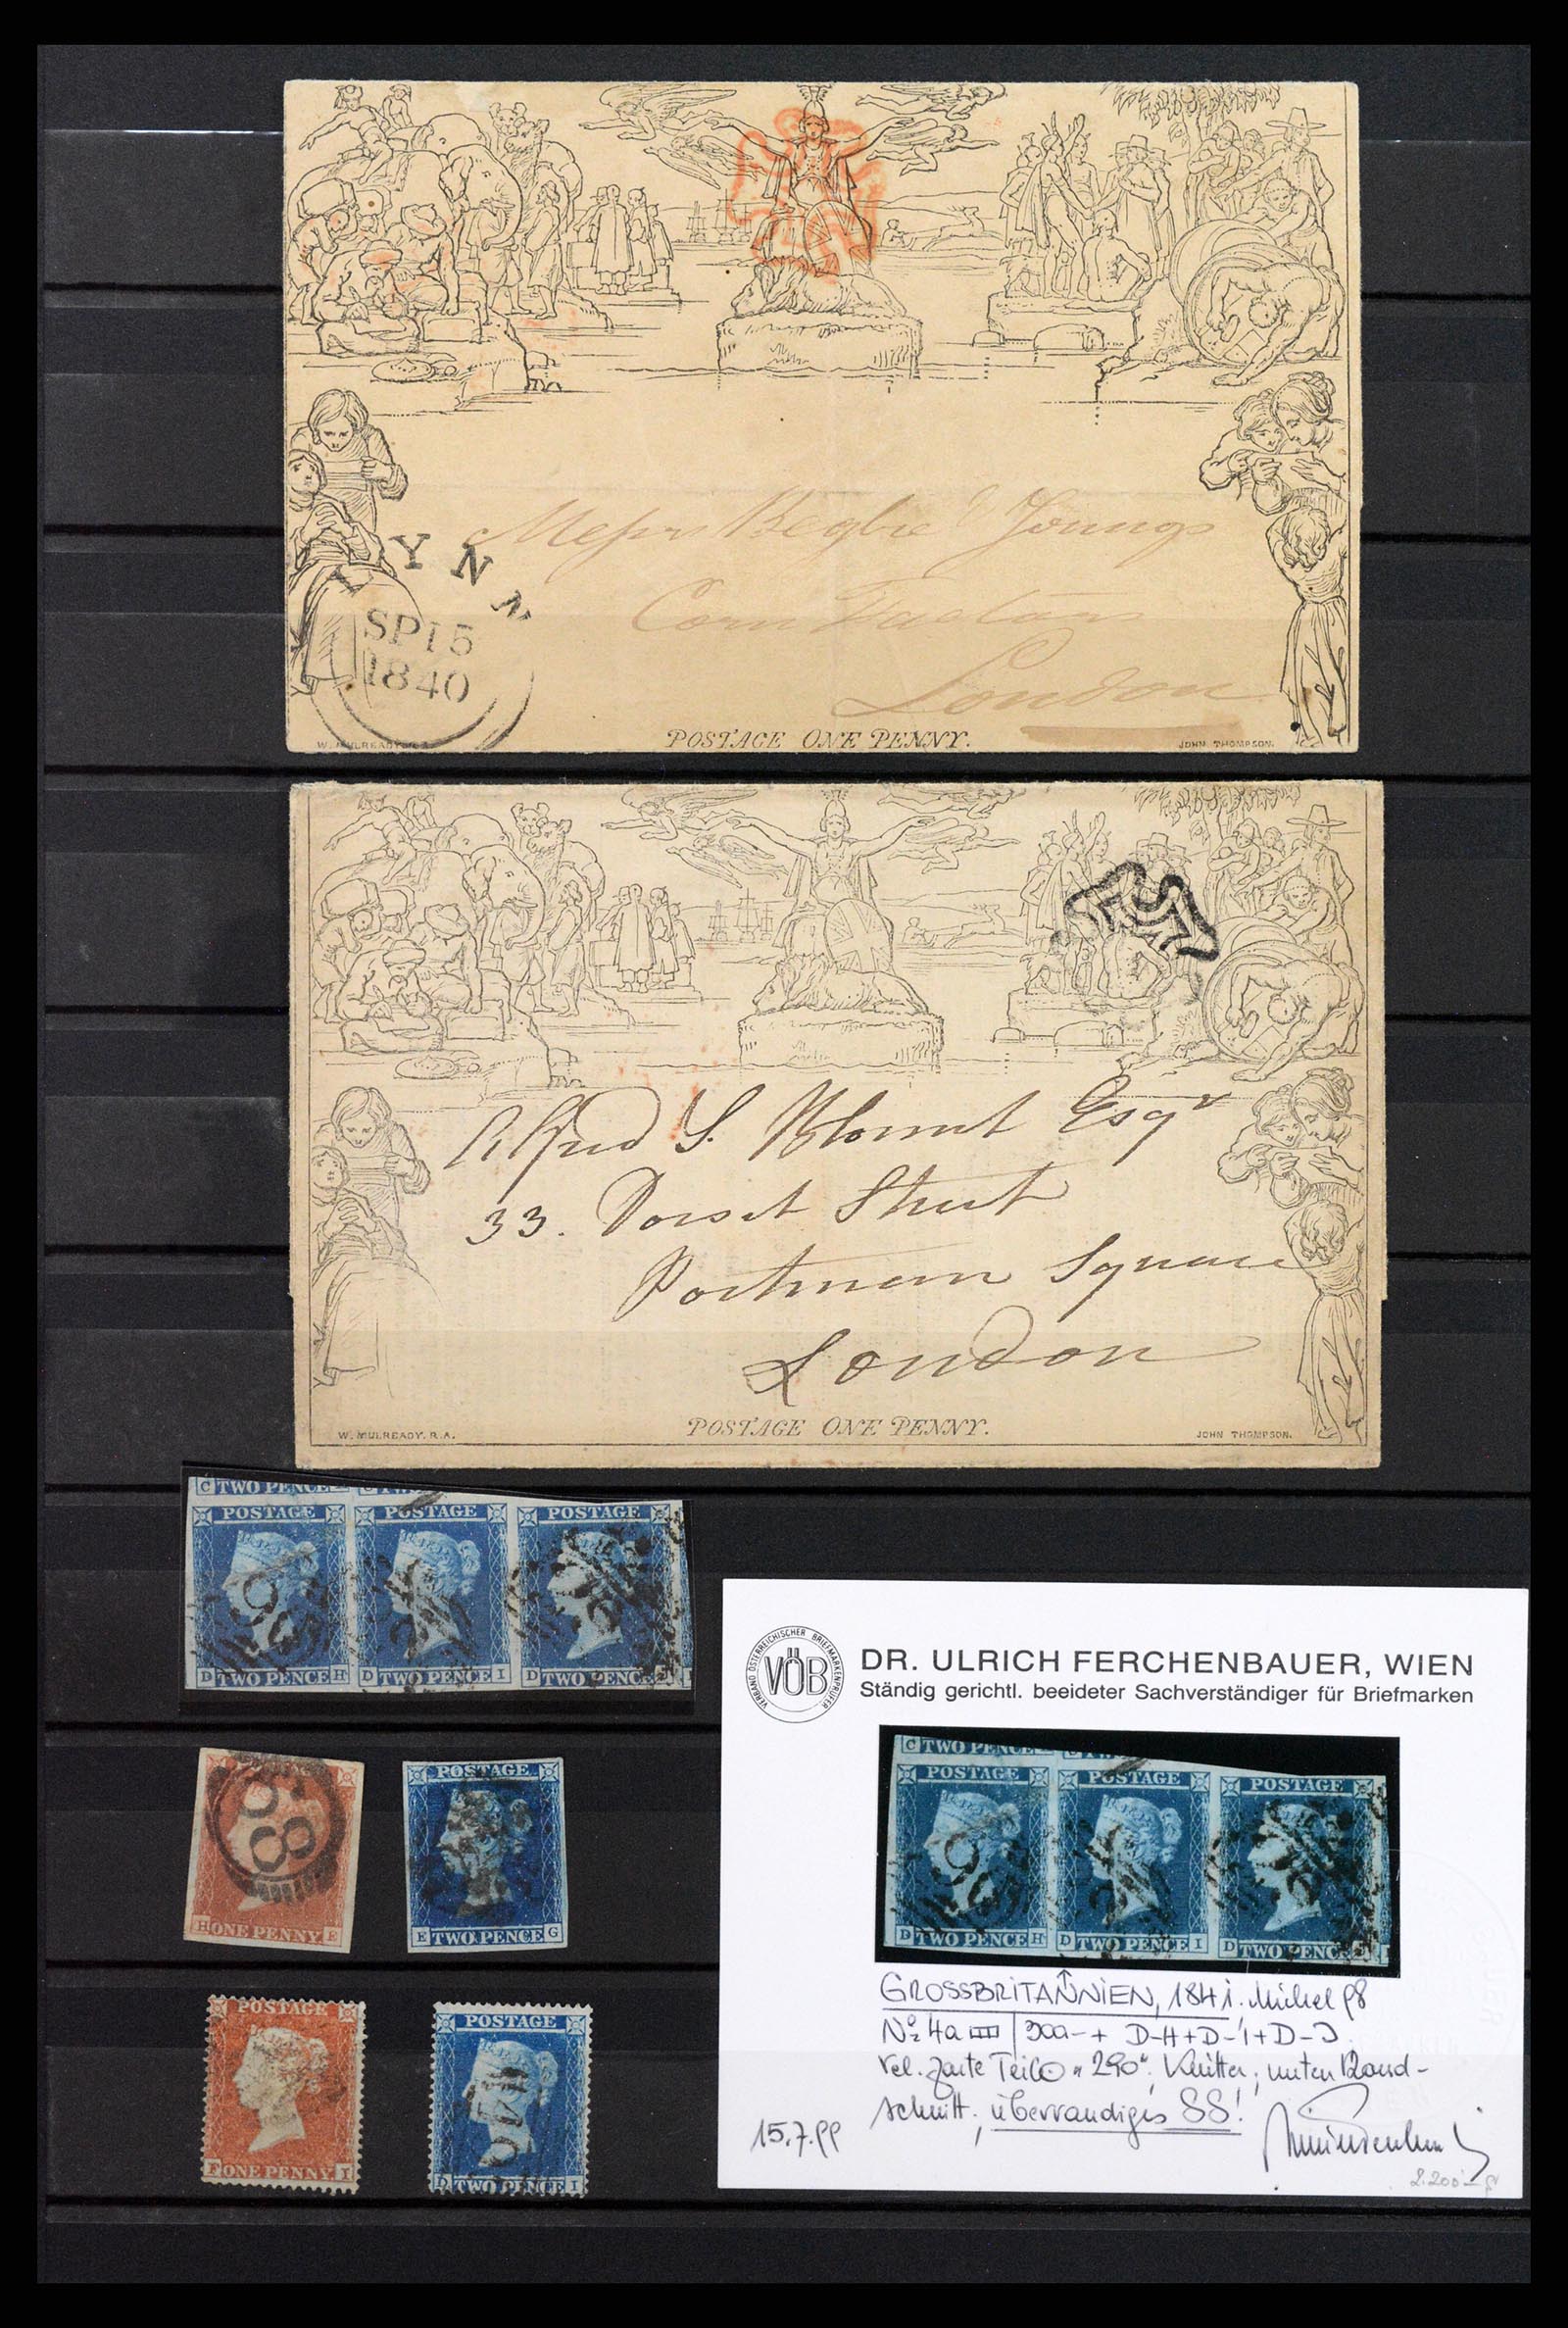 Messrs Begbie & Youngs
Corn Factors
London
LYNN
SP 15
1840
W. MULREADY. R.A.
POSTAGE ONE PENNY.
JOHN THOMPSON.
Alfred S. Blount Esqr
33. Dorset Street
Portman Square
London
W. MULREADY. R.A.
POSTAGE ONE PENNY.
JOHN THOMPSON.
C TWO PENCE
POSTAGE POSTAGE POSTAGE
D TWO PENCE H D TWO PENCE I D TWO PENCE
VERBAND ÖSTERREICHISCHER BRIEFMARKENPRÜFER
VÖB
DR. ULRICH FERCHENBAUER, WIEN
Ständig gerichtl. beeideter Sachverständiger für Briefmarken
C TWO PENCE
POSTAGE POSTAGE POSTAGE
D TWO PENCE H D TWO PENCE I D TWO PENCE
68
H ONE PENNY E
POSTAGE
E TWO PENCE G
POSTAGE
F ONE PENNY I
POSTAGE
D TWO PENCE I
GROSSBRITANNIEN, 1841. Michel 98
No 4a D-H+D-I+D-J
"290", unten Rand-
schnitt, überrandiges SS!
15.7.99
2.200